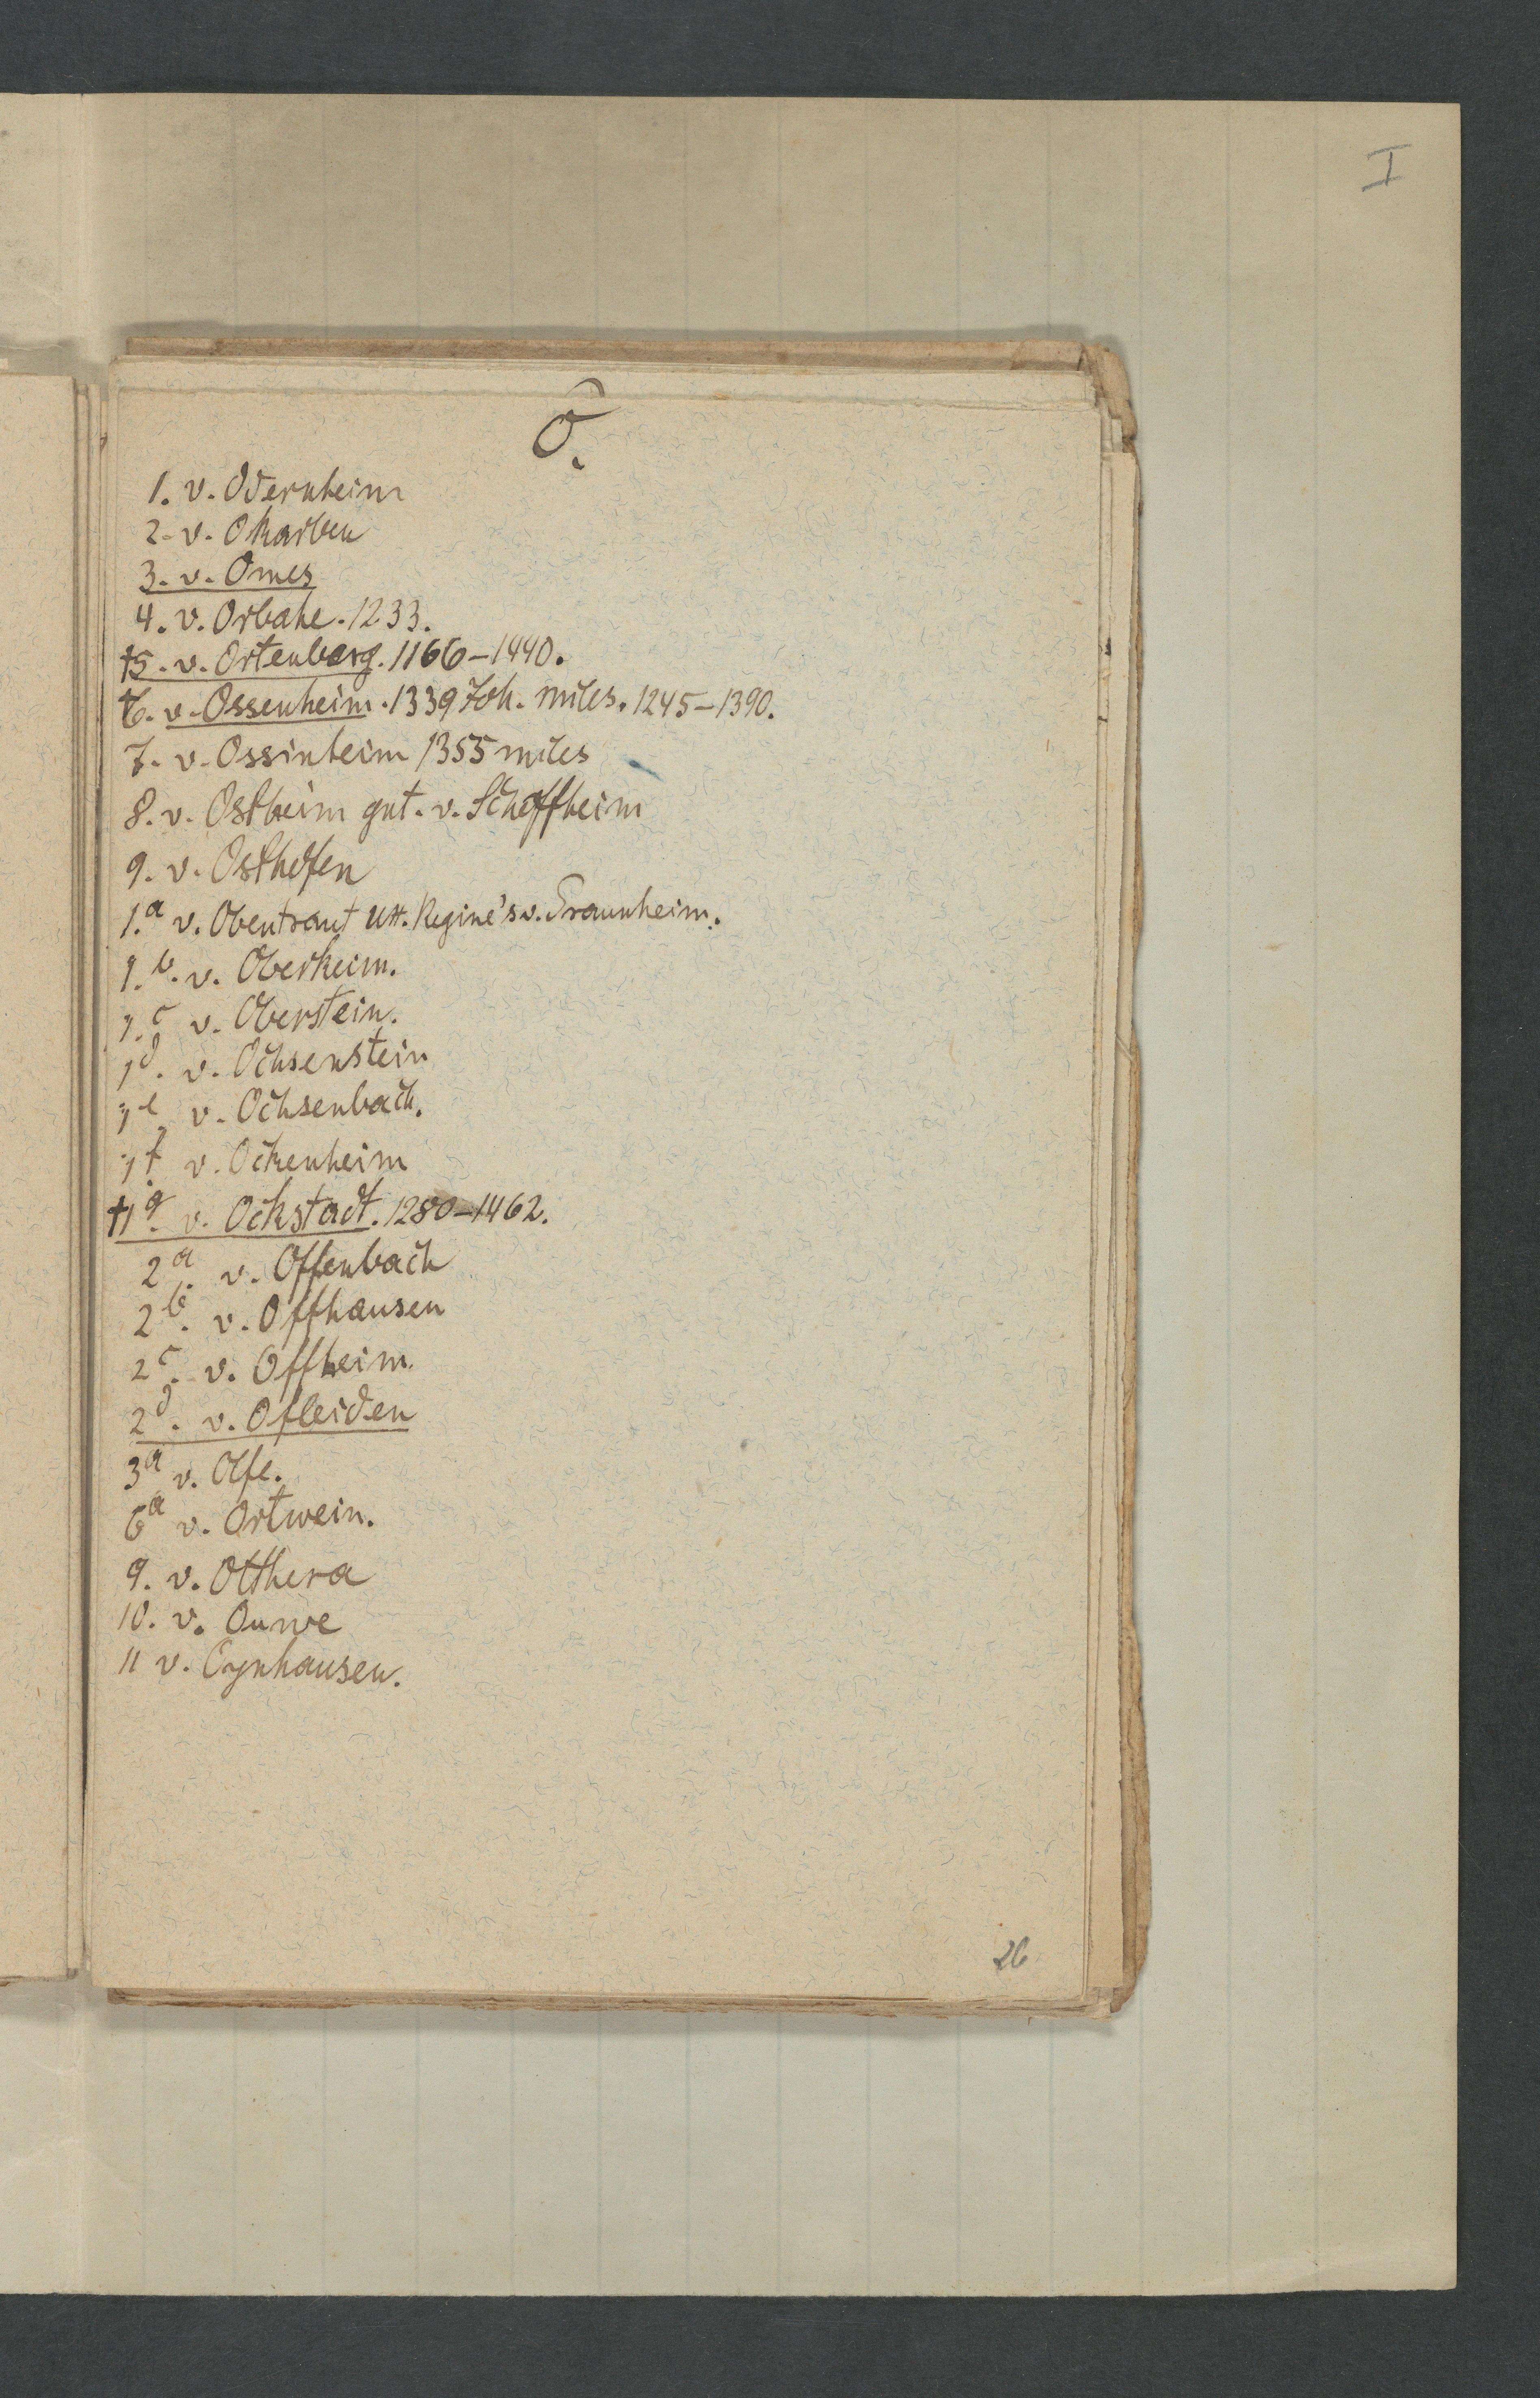 I
O.
1. v. Odernheim
2. v. Okarben
3. v. Omes
4. v. Orbahe. 1233.
†5. v. Ortenberg. 1166-1440.
†6. v. Ossenheim. 1339 Joh. miles. 1245-1390.
7. v. Ossinheim 1355 miles
8. v. Ostheim gnt. v. Schoffheim
9. v. Osthofen
1.a v. Obentraut Utt. Regine's v. Praunheim.
1.b. v. Oberheim.
1.c v. Oberstein.
1d. v. Ochsenstein
1e. v. Ochsenbach.
1f. v. Ockenheim
†1g. v. Ockstadt. 1280-1462.
2a. v. Offenbach
2b. v. Offhausen
2c. v. Offheim.
2d. v. Ofleiden
3a v. Olfe.
6a v. Ortwein.
9. v. Otthera
10. v. Ouwe
11 v. Oynhausen.
26